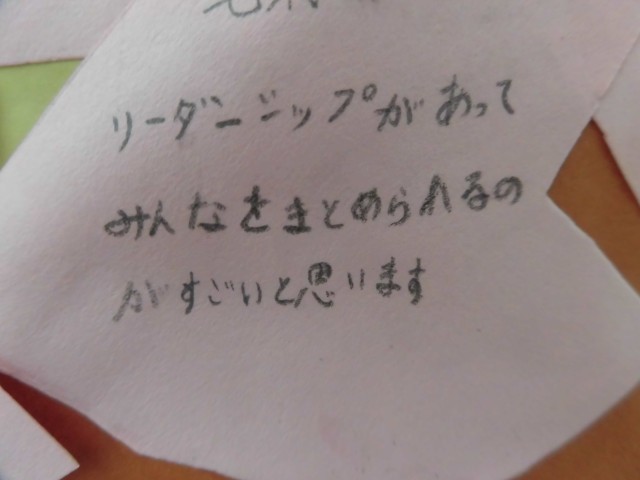 リーダーシップがあって
みんなをまとめられるの
がすごいと思います